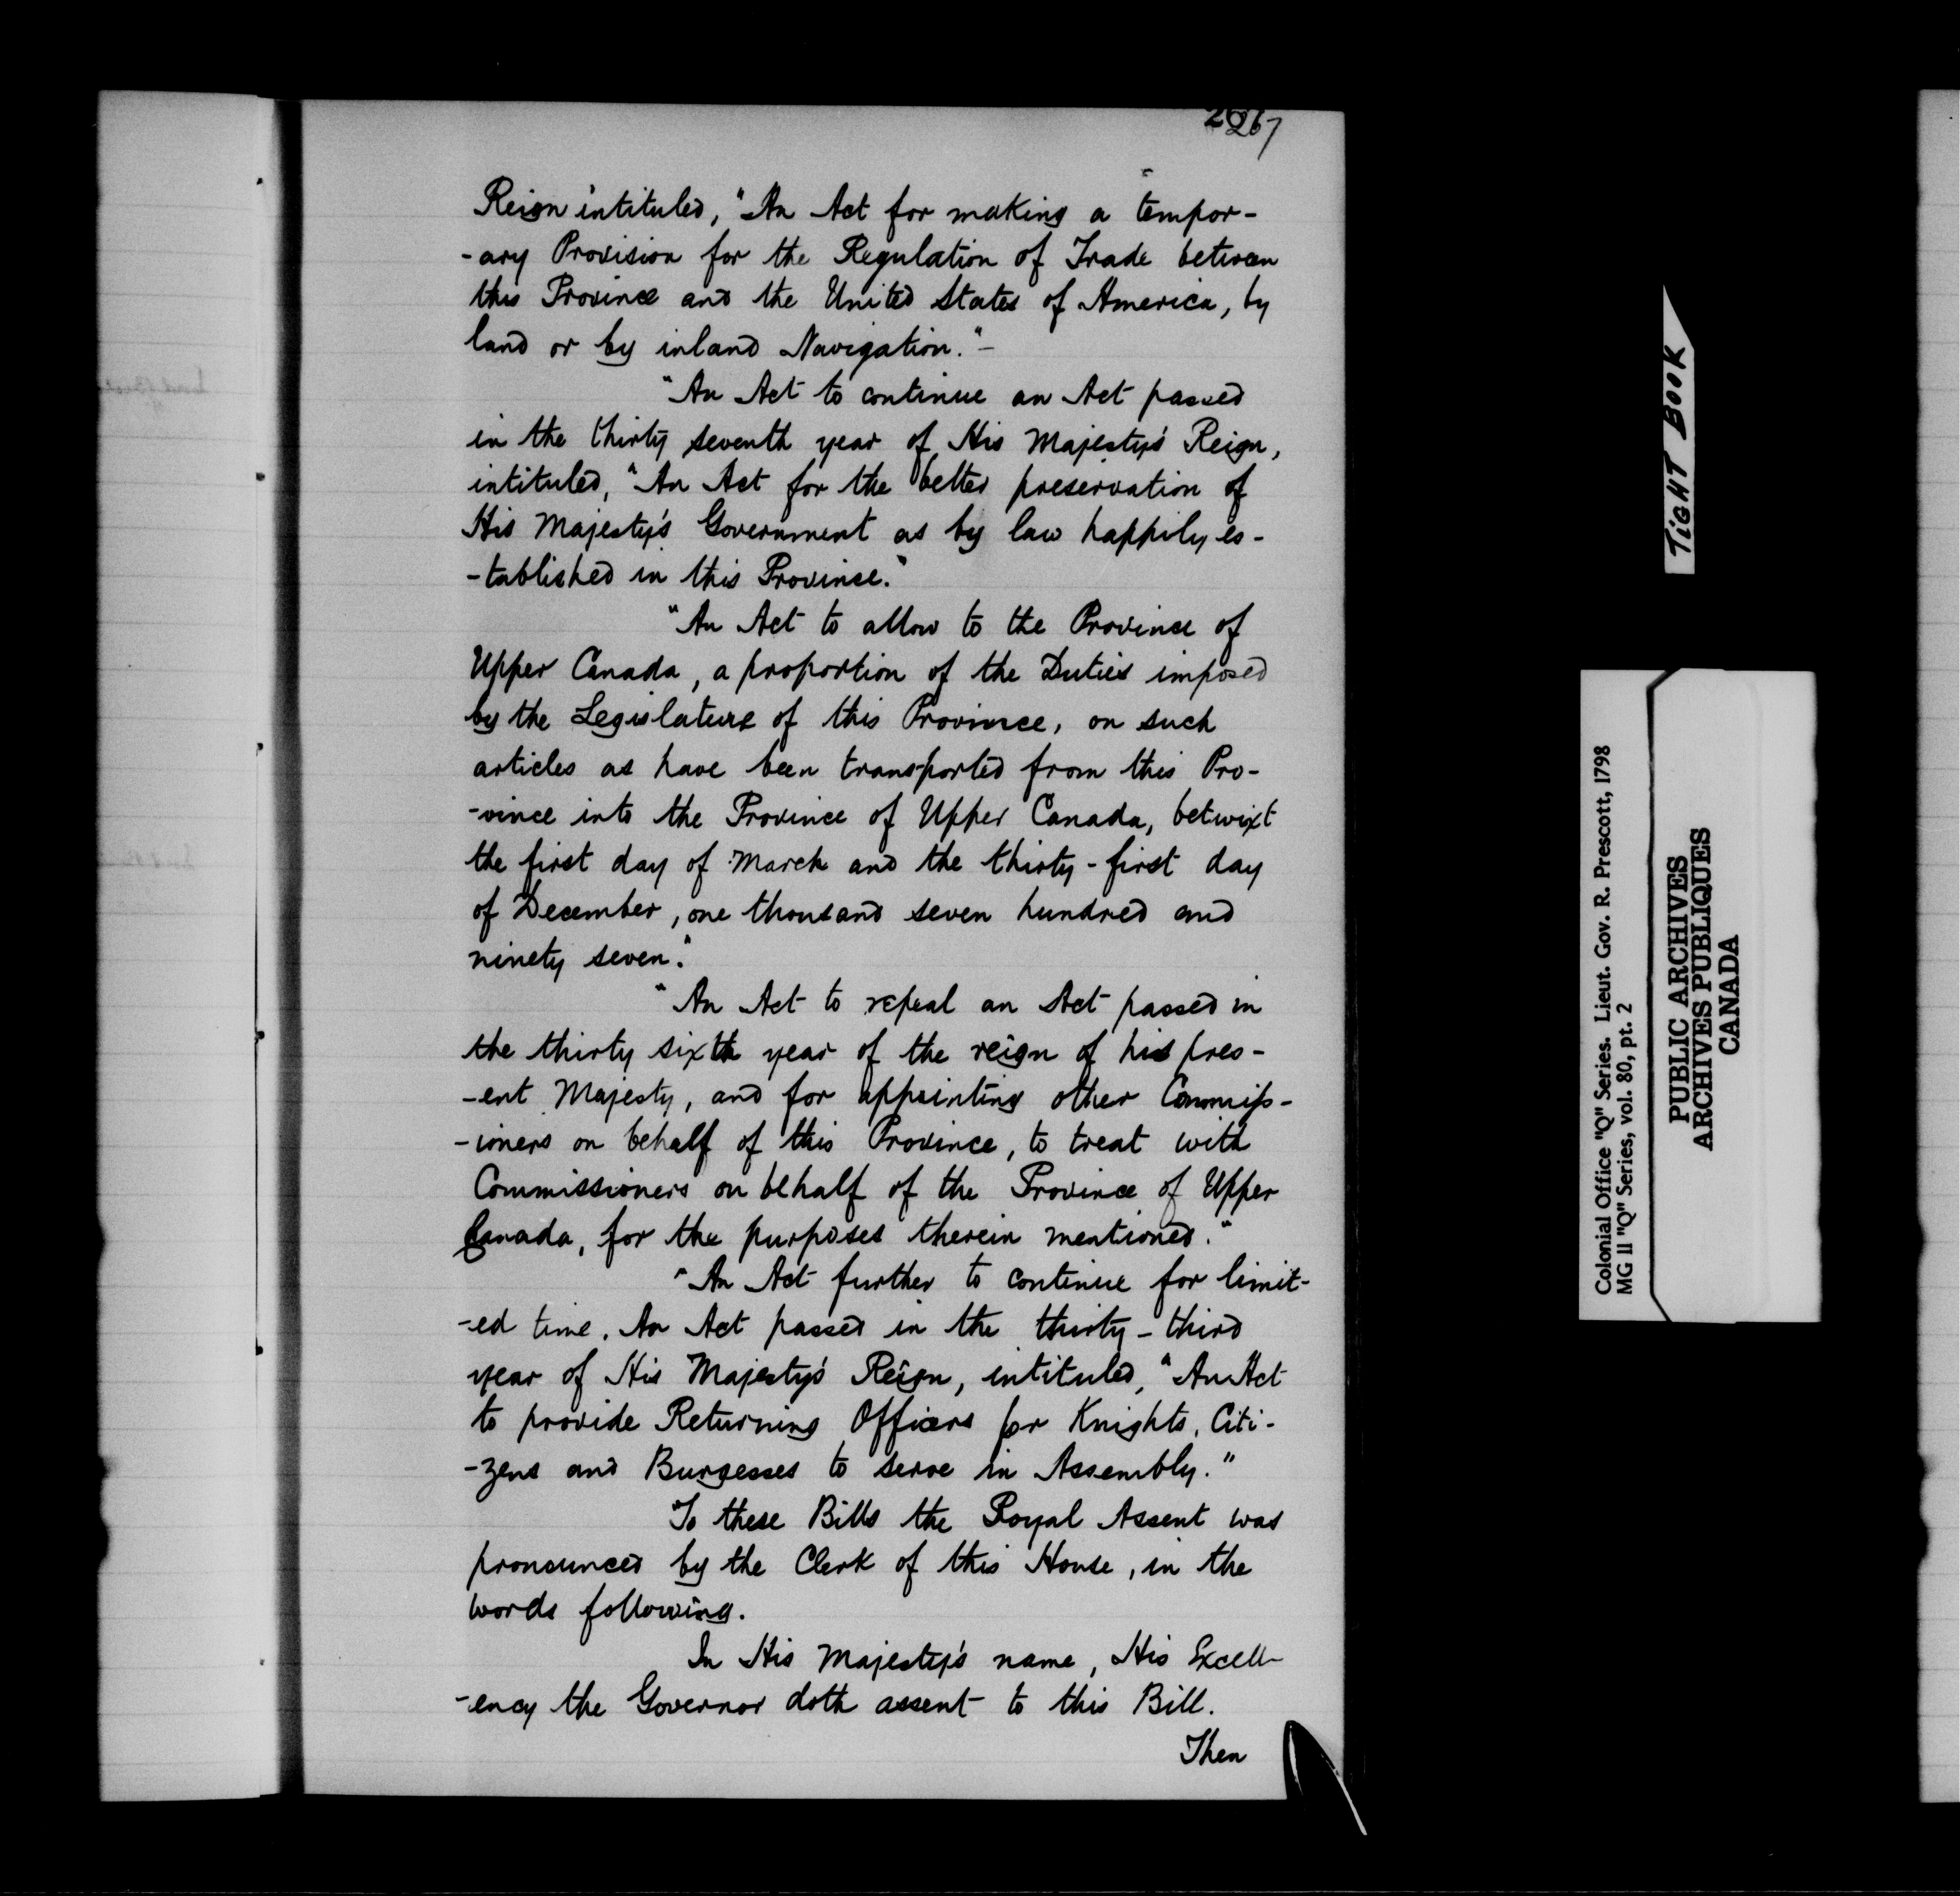 267
Reign intituled, "An Act for making a tempor-
-ary Provision for the Regulation of Trade between
this Province and the United States of America, by
land or by inland Navigation."-
"An Act to continue an Act passed
in the thirty seventh year of His Majesty's Reign,
intituled, "An Act for the better preservation of
His Majesty's Government as by law happily es-
-tablished in this Province."
"An Act to allow to the Province of
Upper Canada, a proportion of the Duties imposed
by the Legislature of this Province, on such
articles as have been transported from this Pro-
-vince into the Province of Upper Canada, betwixt
the first day of March and the thirty-first day
of December, one thousand seven hundred and
ninety seven."
"An Act to repeal an Act passed in
the thirty sixth year of the reign of his pres-
-ent Majesty, and for appointing other Commiss-
-ioners on behalf of this Province, to treat with
Commissioners on behalf of the Province of Upper
Canada, for the purposes therein mentioned."
"An Act further to continue for limit-
-ed time. An Act passed in the thirty-third
year of His Majesty's Reign, intituled, "An Act
to provide Returning Officers for Knights, Citi-
-zens and Burgesses to serve in Assembly."
To these Bills the Royal Assent was
pronounced by the Clerk of this House, in the
words following.
In His Majesty's name, His Excell-
-ency the Governor doth assent to this Bill.
Then
TIGHT BOOK
Colonial Office "Q" Series. Lieut. Gov. R. Prescott, 1798
MG 11 "Q" Series, vol. 80, pt. 2
PUBLIC ARCHIVES
ARCHIVES PUBLIQUES
CANADA